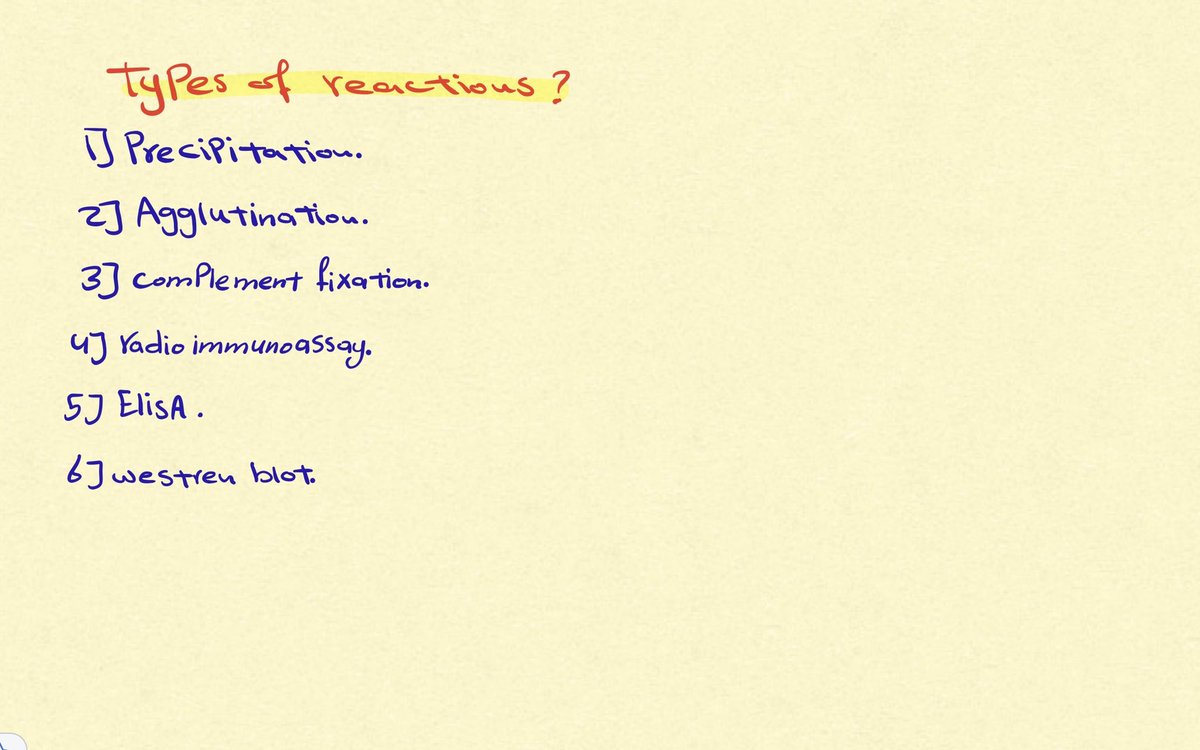 Types of reactions?
1] Precipitation.
2] Agglutination.
3] complement fixation.
4] radio immunoassay.
5] ElisA.
6] westren blot.